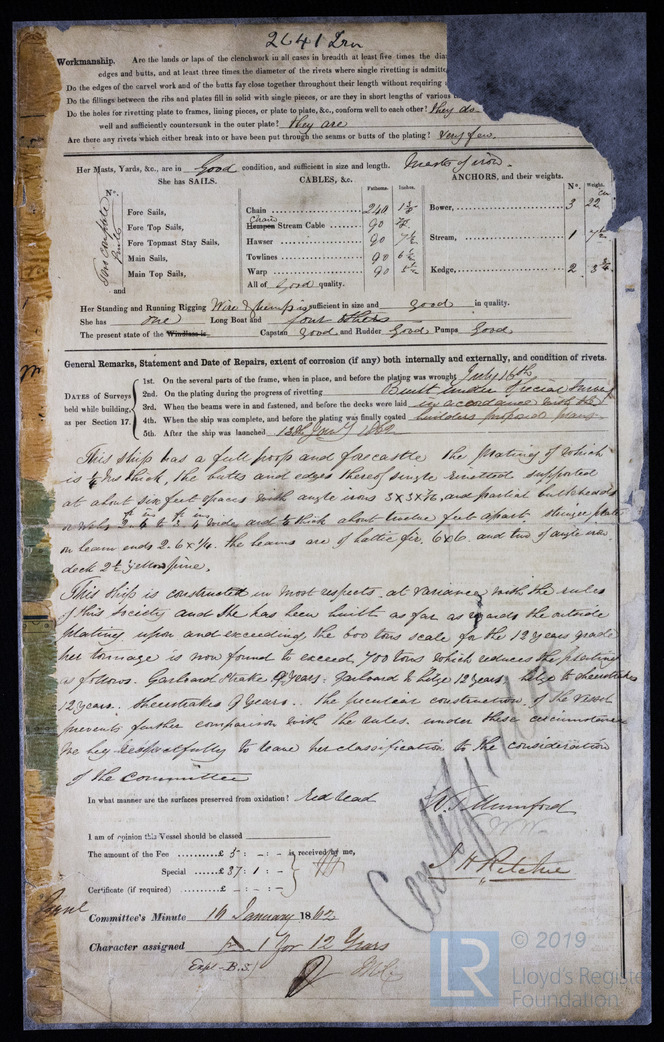 2641 Irn
Workmanship. Are the lands or laps of the clenchwork in all cases in breadth at least five times the dia
edges and butts, and at least three times the diameter of the rivets where single rivetting is admitte
Do the edges of the carvel work and of the butts fay close together throughout their length without requiring
Do the fillings between the ribs and plates fill in solid with single pieces, or are they in short lengths of various
Do the holes for rivetting plate to frames, lining pieces, or plate to plate, &c., conform well to each other? They do
well and sufficiently countersunk in the outer plate? They are
Are there any rivets which either break into or have been put through the seams or butts of the plating? Very few.
Her Masts, Yards, &c., are in Good condition, and sufficient in size and length. Masts of iron.
She has SAILS. CABLES, &c. ANCHORS, and their weights.
Fathoms. Inches. No. Weight.
Two complete suits
Fore Sails,
Fore Top Sails,
Fore Topmast Stay Sails,
Main Sails,
Main Top Sails,
and
Chain 240
Chain
Hempen Stream Cable 90
Hawser 90 7½
Towlines 90 6½
Warp 90 5½
All of Good quality.
Bower, 3 22
Stream, 1 7½
Kedge, 2 3¾
Her Standing and Running Rigging Wire & hemp is sufficient in size and good in quality.
She has one Long Boat and four others
The present state of the Windlass is Capstan Good and Rudder Good Pumps Good
General Remarks, Statement and Date of Repairs, extent of corrosion (if any) both internally and externally, and condition of rivets.
DATES of Surveys held while building, as per Section 17.
1st. On the several parts of the frame, when in place, and before the plating was wrought July 16th
2nd. On the plating during the progress of rivetting Built under Special Survey
3rd. When the beams were in and fastened, and before the decks were laid in accordance with the
4th. When the ship was complete, and before the plating was finally coated builders proposed plans
5th. After the ship was launched 13th Jany 1862
This ship has a full poop and forecastle the plating of which
is thick, the butts and edges thereof single rivetted supported
at about six feet spaces with angle irons 3x3x and partial bulkheads
wide, and thick about twelve feet apart. stringer plate
on beam ends 2.6 x ¼. the beams are of baltic fir, 6x6. and two of angle iron
deck yellow pine.
This ship is constructed in most respects at variance with the rules
of this Society and she has been built as far as regards the outside
plating upon and exceeding the 600 tons scale for the 12 years grade
her tonnage is now found to exceed 700 tons which reduces the plating
as follows. Garboard Strake 9 years: garboard to bilge 12 years: bilge to sheerstrakes
12 years. sheerstrakes 9 years.. the peculiar construction of the vessel
prevents further comparison with the rules. under these circumstances
we beg respectfully to leave her classification to the consideration
of the Committee
In what manner are the surfaces preserved from oxidation? Red lead
W. T. Mumford
I am of opinion this Vessel should be classed
J H Ritchie
The amount of the Fee £ 5 : - : - is received by me,
Special £ 37 : 1 : -
Certificate (if required) £ - : - : -
Committee's Minute 16 January 1862
Character assigned 1 for 12 Years
Expl - B.S.
LR © 2019
Lloyd's Registe
Foundation